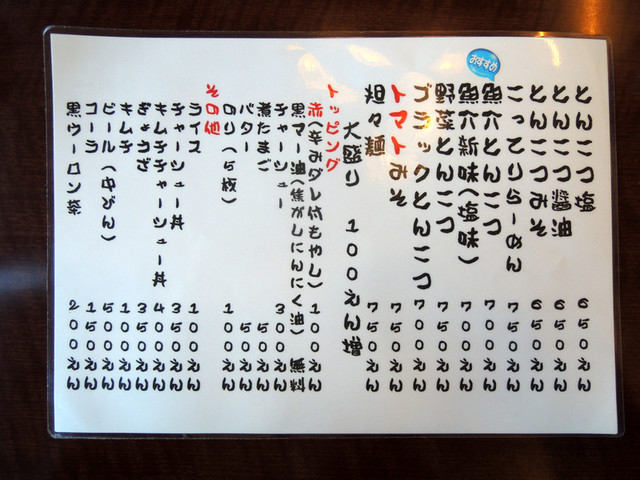 おすすめ
とんこつ塩 650えん
とんこつ醤油 650えん
とんこつみそ 650えん
こってりらーめん 700えん
魚介とんこつ 700えん
魚介新味(塩味) 700えん
野菜とんこつ 750えん
ブラックとんこつ 700えん
トマトみそ 750えん
坦々麺 750えん
大盛り 100えん増
トッピング
赤(辛みダレ付もやし) 100えん
黒マー油(焦がしにんにく油) 無料
チャーシュー 300えん
煮たまご 50えん
バター 50えん
のり(5枚) 100えん
その他
ライス 100えん
チャーシュー丼 350えん
キムチチャーシュー丼 400えん
ぎょうざ 350えん
キムチ 100えん
ビール(中びん) 500えん
コーラ 150えん
黒ウーロン茶 200えん